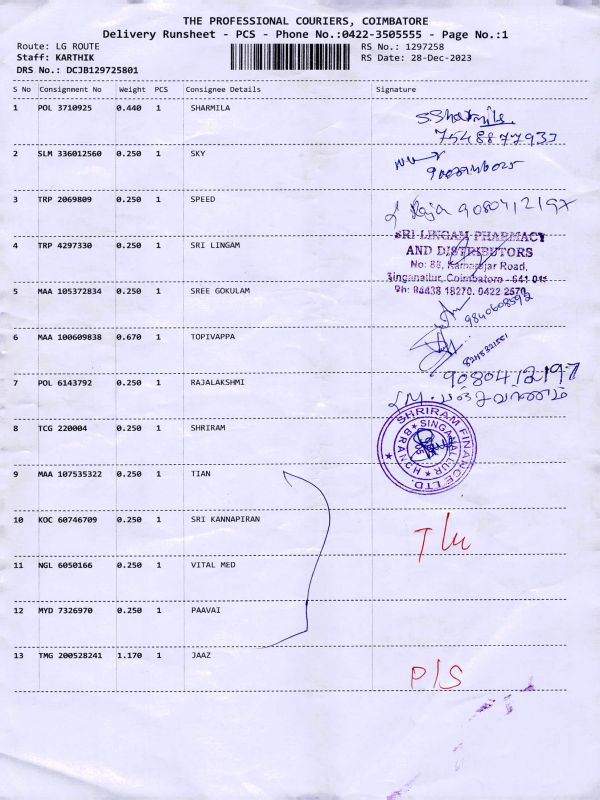 THE PROFESSIONAL COURIERS, COIMBATORE
Delivery Runsheet - PCS - Phone No.:0422-3505555 - Page No.:1
Route: LG ROUTE RS No.: 1297258
Staff: KARTHIK RS Date: 28-Dec-2023
DRS No.: DCJB129725801
S No Consignment No Weight PCS Consignee Details Signature
1 POL 3710925 0.440 1 SHARMILA
S.Sharmila
2 SLM 336012560 0.250 1 SKY
3 TRP 2069809 0.250 1 SPEED
Raja 9080412197
4 TRP 4297330 0.250 1 SRI LINGAM
SRI LINGAM PHARMACY
AND DISTRIBUTORS
No: 88, Kamarajar Road,
Singanallur, Coimbatore
5 MAA 105372834 0.250 1 SREE GOKULAM
9840608592
6 MAA 100609838 0.670 1 TOPIVAPPA
7 POL 6143792 0.250 1 RAJALAKSHMI
9080412197
8 TCG 220004 0.250 1 SHRIRAM
SHRIRAM FINANCE LTD.
SINGANALLUR
BRANCH
9 MAA 107535322 0.250 1 TIAN
10 KOC 60746709 0.250 1 SRI KANNAPIRAN
11 NGL 6050166 0.250 1 VITAL MED
12 MYD 7326970 0.250 1 PAAVAI
13 TMG 200528241 1.170 1 JAAZ
P/S